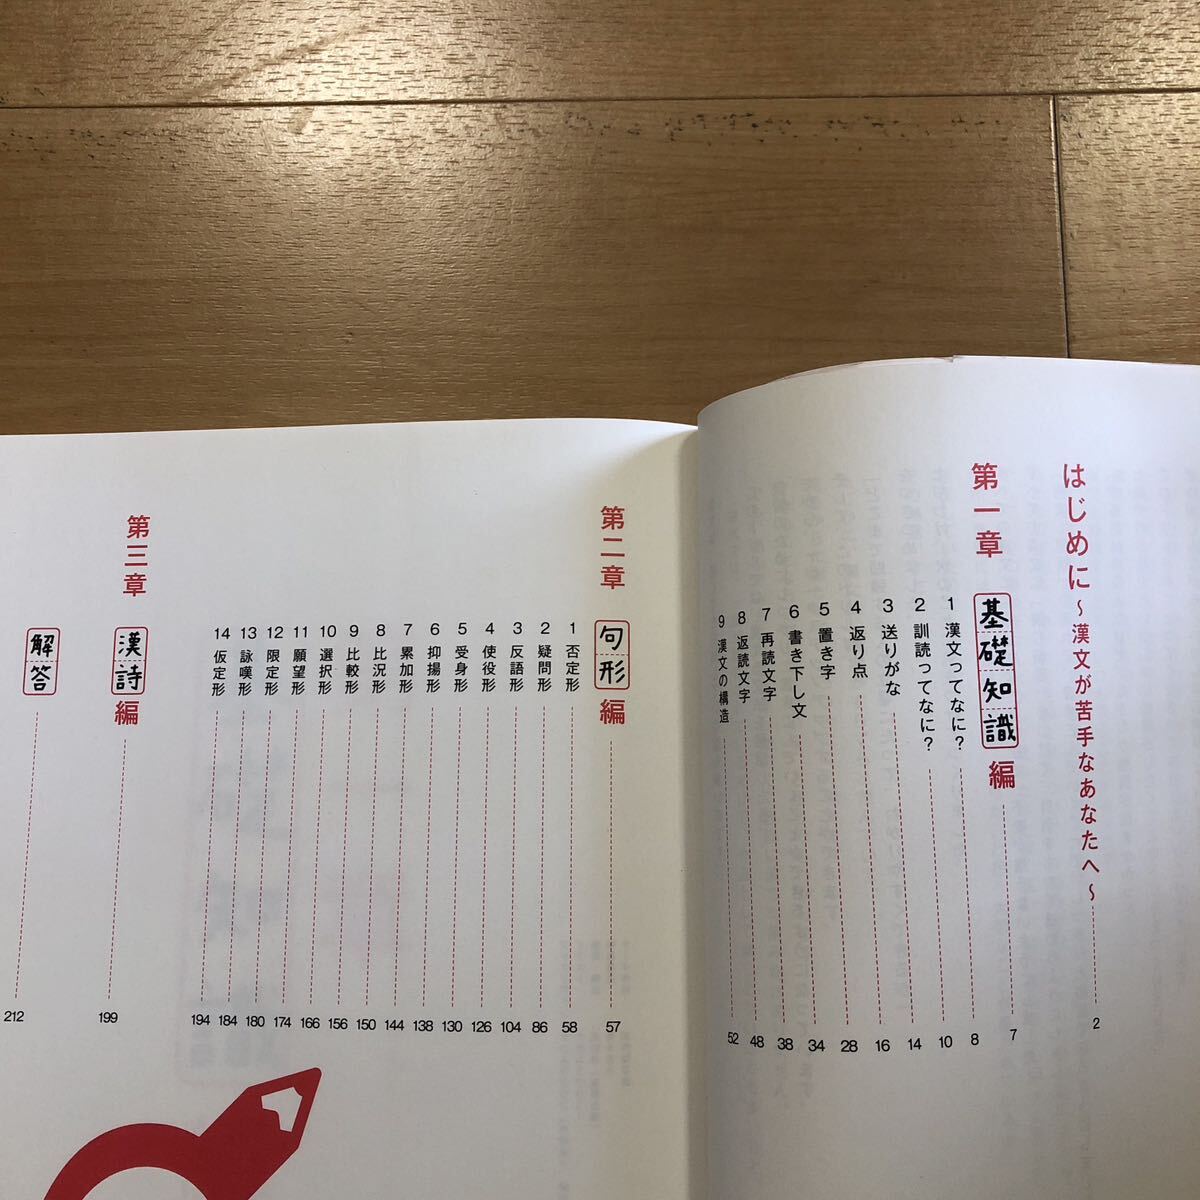 はじめに〜漢文が苦手なあなたへ〜 2
第一章 基礎知識編 7
1 漢文ってなに? 8
2 訓読ってなに? 10
3 送りがな 14
4 返り点 16
5 置き字 28
6 書き下し文 34
7 再読文字 38
8 返読文字 48
9 漢文の構造 52
第二章 句形編 57
1 否定形 58
2 疑問形 86
3 反語形 104
4 使役形 126
5 受身形 130
6 抑揚形 138
7 累加形 144
8 比況形 150
9 比較形 156
10 選択形 166
11 願望形 174
12 限定形 180
13 詠嘆形 184
14 仮定形 194
第三章 漢詩編 199
解答 212